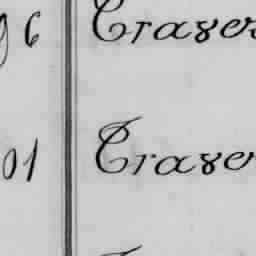 96 Traver
01 Traver